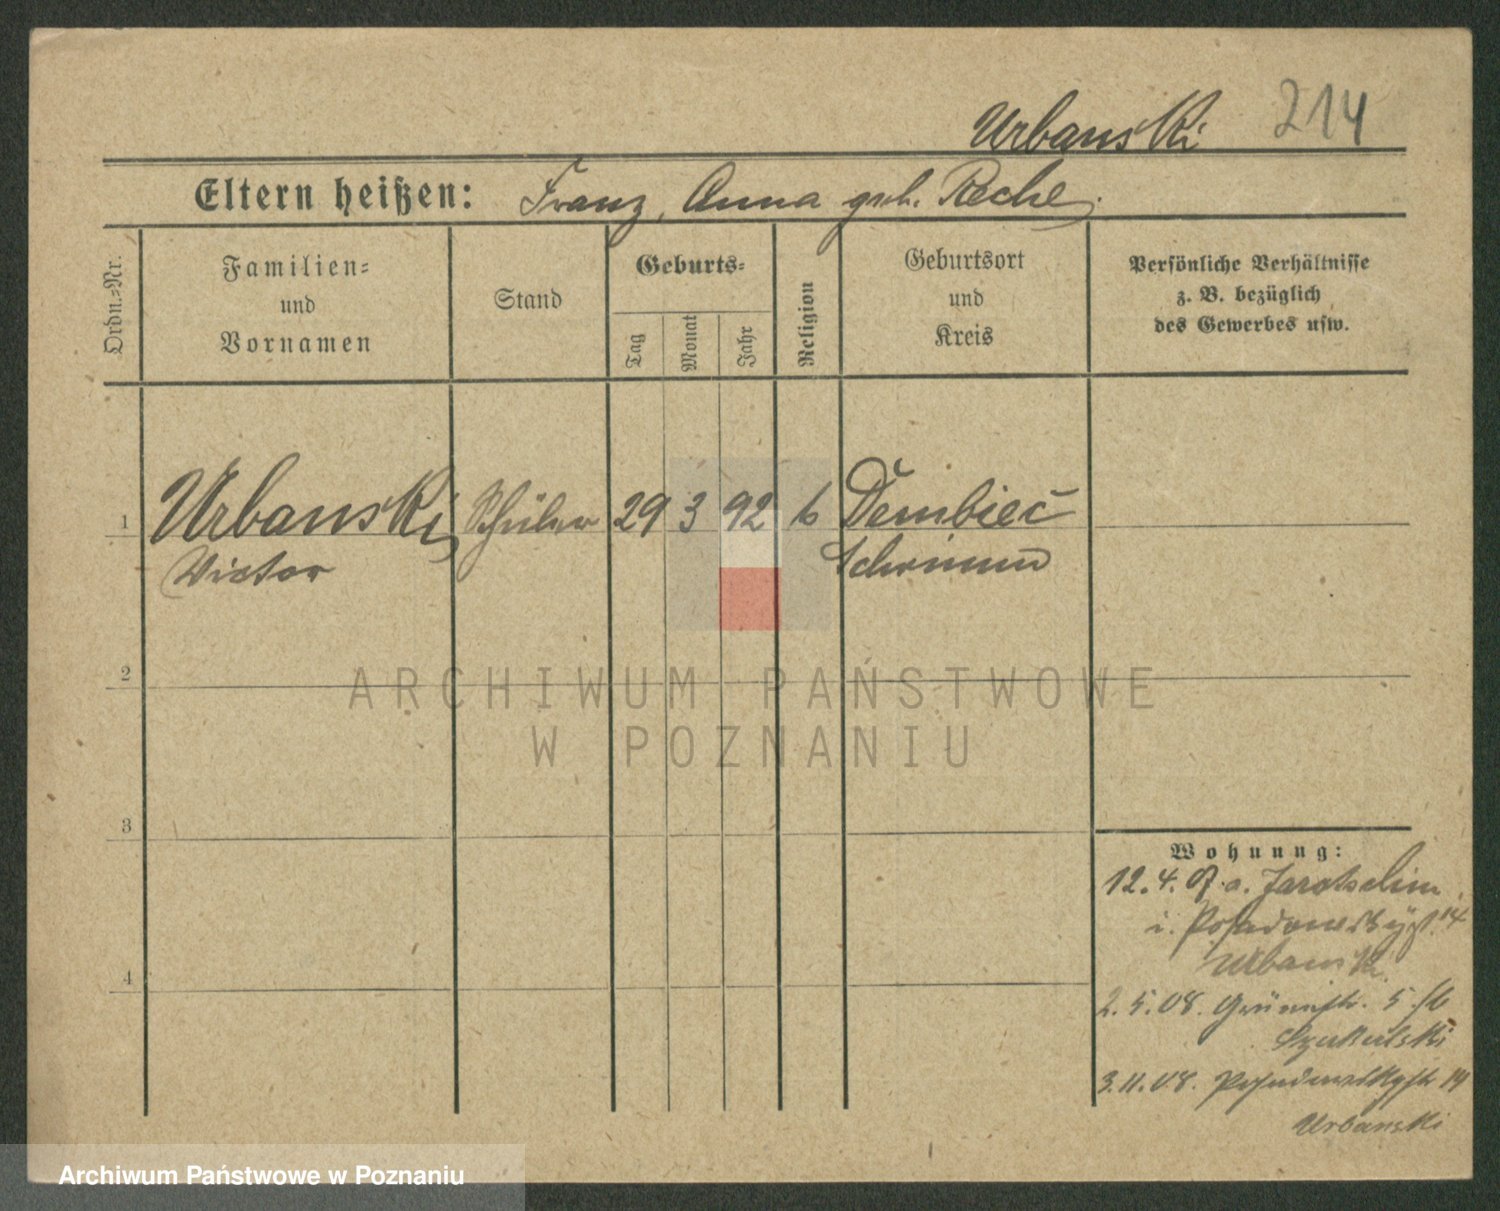 Urbanski 214
Eltern heißen: Franz, Anna geb. Reche.
Ordn.-Nr.
Familien-
und
Vornamen
Stand
Geburts-
Tag
Monat
Jahr
Religion
Geburtsort
und
Kreis
Persönliche Verhältnisse
z. B. bezüglich
des Gewerbes usw.
1 Urbanski Schüler 29 3 92 k Dembiec
Victor Schrimm
2
ARCHIWUM PAŃSTWOWE
W POZNANIU
3
4
Wohnung:
12.4. a. Jarotschin
i. 14
Urbanski
2.5.08. Grünestr. 5
3.11.08. 14
Urbanski
Archiwum Państwowe w Poznaniu